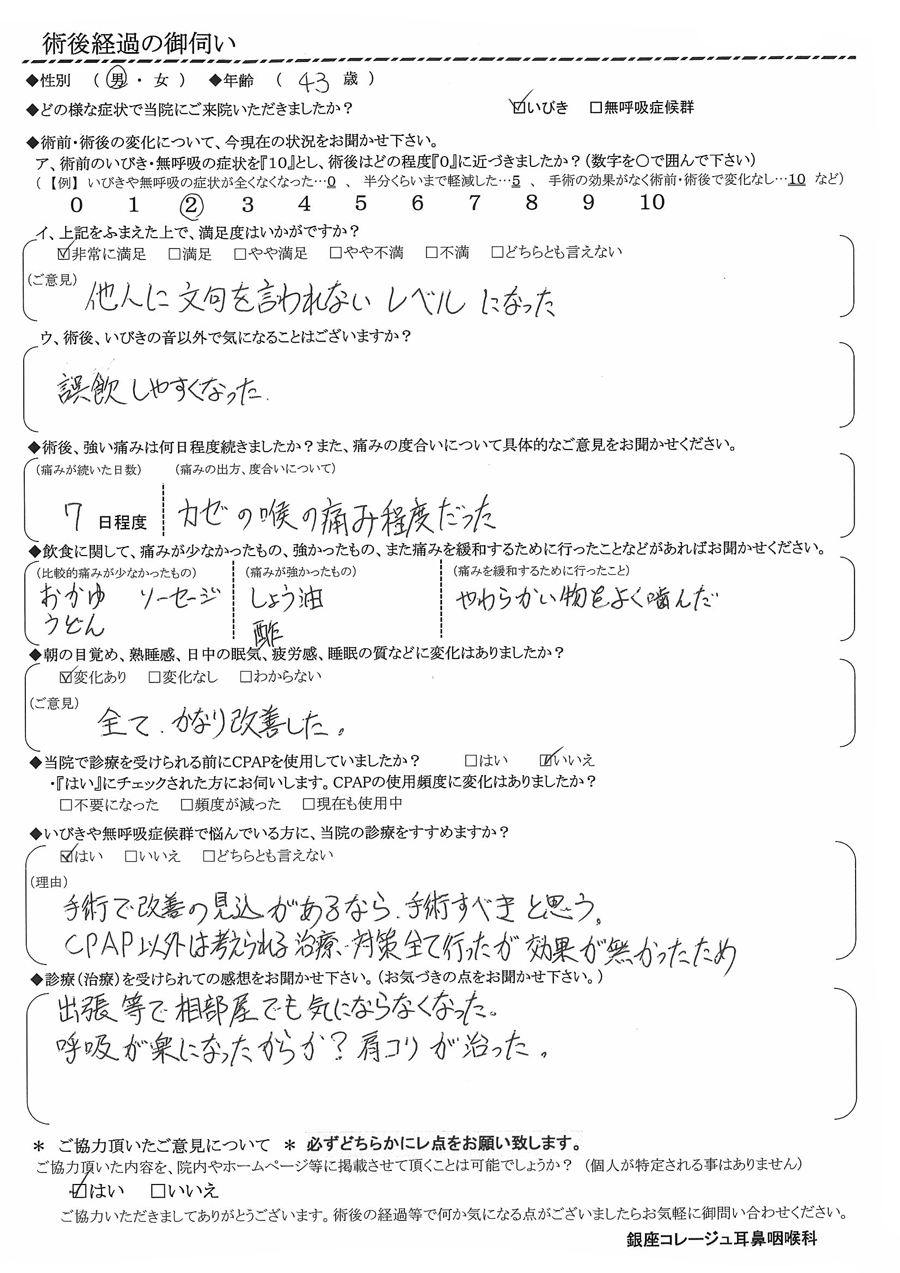 術後経過の御伺い
◆性別 （ 男 ・ 女 ） ◆年齢 （ 43 歳 ）
◆どの様な症状で当院にご来院いただきましたか？ ☑いびき □無呼吸症候群
◆術前・術後の変化について、今現在の状況をお聞かせ下さい。
ア、術前のいびき・無呼吸の症状を『10』とし、術後はどの程度『0』に近づきましたか？（数字を〇で囲んで下さい）
（【例】 いびきや無呼吸の症状が全くなくなった…0 、 半分くらいまで軽減した…5 、 手術の効果がなく術前・術後で変化なし…10 など）
0 1 ② 3 4 5 6 7 8 9 10
イ、上記をふまえた上で、満足度はいかがですか？
☑非常に満足 □満足 □やや満足 □やや不満 □不満 □どちらとも言えない
（ご意見）
他人に文句を言われない レベル になった
ウ、術後、いびきの音以外で気になることはございますか？
誤飲しやすくなった.
◆術後、強い痛みは何日程度続きましたか？また、痛みの度合いについて具体的なご意見をお聞かせください。
（痛みが続いた日数） （痛みの出方、度合いについて）
7 日程度 カゼの喉の痛み程度だった
◆飲食に関して、痛みが少なかったもの、強かったもの、また痛みを緩和するために行ったことなどがあればお聞かせください。
（比較的痛みが少なかったもの） （痛みが強かったもの） （痛みを緩和するために行ったこと）
おかゆ ソーセージ しょう油 やわらかい物をよく噛んだ
うどん 酢
◆朝の目覚め、熟睡感、日中の眠気、疲労感、睡眠の質などに変化はありましたか？
☑変化あり □変化なし □わからない
（ご意見）
全て、かなり改善した。
◆当院で診療を受けられる前にCPAPを使用していましたか？ □はい ☑いいえ
・『はい』にチェックされた方にお伺いします。CPAPの使用頻度に変化はありましたか？
□不要になった □頻度が減った □現在も使用中
◆いびきや無呼吸症候群で悩んでいる方に、当院の診療をすすめますか？
☑はい □いいえ □どちらとも言えない
（理由）
手術で改善の見込があるなら、手術すべきと思う。
CPAP以外は考えられる治療、対策全て行ったが効果が無かったため
◆診療（治療）を受けられての感想をお聞かせ下さい。（お気づきの点をお聞かせ下さい。）
出張等で相部屋でも気にならなくなった。
呼吸が楽になったからか？肩コリが治った。
＊ ご協力頂いたご意見について ＊ 必ずどちらかにレ点をお願い致します。
ご協力頂いた内容を、院内やホームページ等に掲載させて頂くことは可能でしょうか？ （個人が特定される事はありません）
☑はい □いいえ
ご協力いただきましてありがとうございます。術後の経過等で何か気になる点がございましたらお気軽に御問い合わせください。
銀座コレージュ耳鼻咽喉科